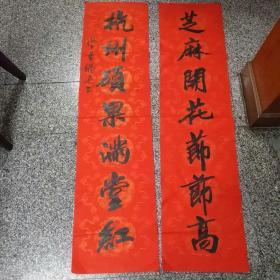 芝麻開花節節高
杭州碩果滿堂紅